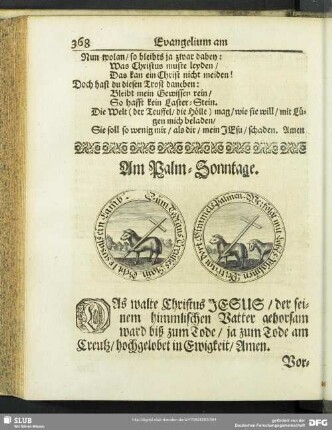 368
Evangelium am
Nun wolan / so bleibts ja zwar dabey:
Was Christus muste leyden /
Das kan ein Christ nicht meiden!
Doch hast du diesen Trost daneben:
Bleibt mein Gewissen rein /
So hafft kein Laster-Stein.
Die Welt (der Teuffel / die Hölle) mag / wie sie will / mit Lü-
gen mich beladen /
Sie soll so wenig mir / als dir / mein JEsu / schaden. Amen
Am Palm-Sonntage.
DAs walte Christus JESUS / der sei-
nem himmlischen Vatter gehorsam
ward biß zum Tode / ja zum Tode am
Creutz / hochgelobet in Ewigkeit / Amen.
Vor-
SLUB
Wir führen Wissen.
gefördert von der
Deutschen Forschungsgemeinschaft
DFG